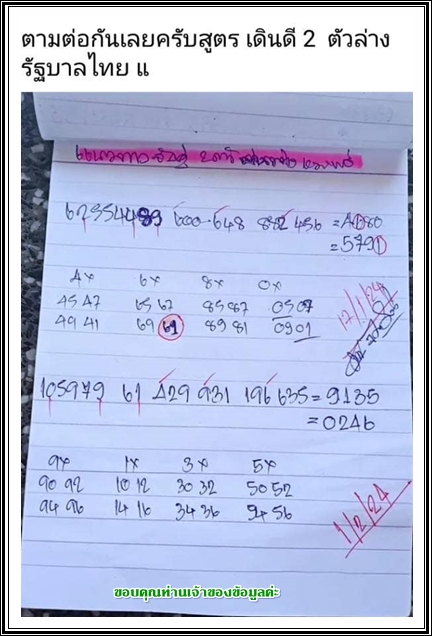 ตามต่อกันเลยครับสูตร เดินดี 2 ตัวล่าง
รัฐบาลไทย แ
600-648 882 456 = 4680
= 5791
4x 6x 8x 0x
45 47 65 67 85 87 05 07
49 41 69 61 89 81 09 01
17/1/24
105979 61 429 931 196 635 = 9135
= 0246
9x 1x 3x 5x
90 92 10 12 30 32 50 52
94 96 14 16 34 36 54 56
1/2/24
ขอบคุณท่านเจ้าของข้อมูลค่ะ